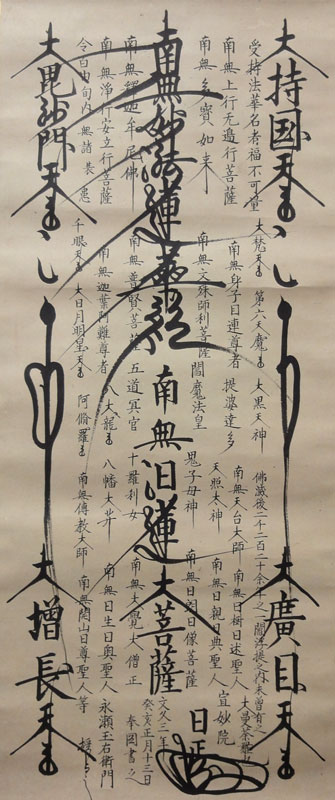 大持國天王
受持法華名者福不可量
南無上行無邊行菩薩
南無多寶如来
南無妙法蓮華経
南無釋迦牟尼佛
南無浄行安立行菩薩
令百由旬内無諸衰患
大毘沙門天王
大梵天王
第六天魔王
大黒天神
南無身子目連尊者
提婆達多
南無文殊師利菩薩
閻魔法皇
南無普賢菩薩
五道冥官
南無迦葉阿難尊者
八大龍王
千眼天王
大日月明皇天王
阿脩羅王
佛滅後二千二百二十余年之間
一閻浮提之内未曽有之
大曼荼羅也
南無天台大師
天照太神
鬼子母神
南無日蓮大菩薩
十羅刹女
八幡大菩薩
南無傳教大師
大廣目天王
南無日樹日述聖人
南無日親日典聖人
南無日朗日像菩薩
南無大覚大僧正
南無日生日奥聖人
南無開山日尊聖人等
宣妙院
日正
文久三年
癸亥正月十三日
奉圖書之
永瀬玉右衛門
授之
大増長天王